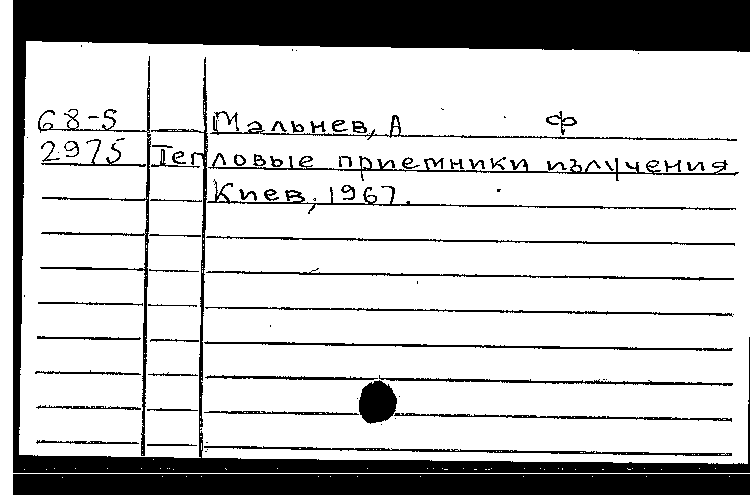 68-5 Мальнев, А ф
2975 Тепловые приемники излучения
Киев, 1967.